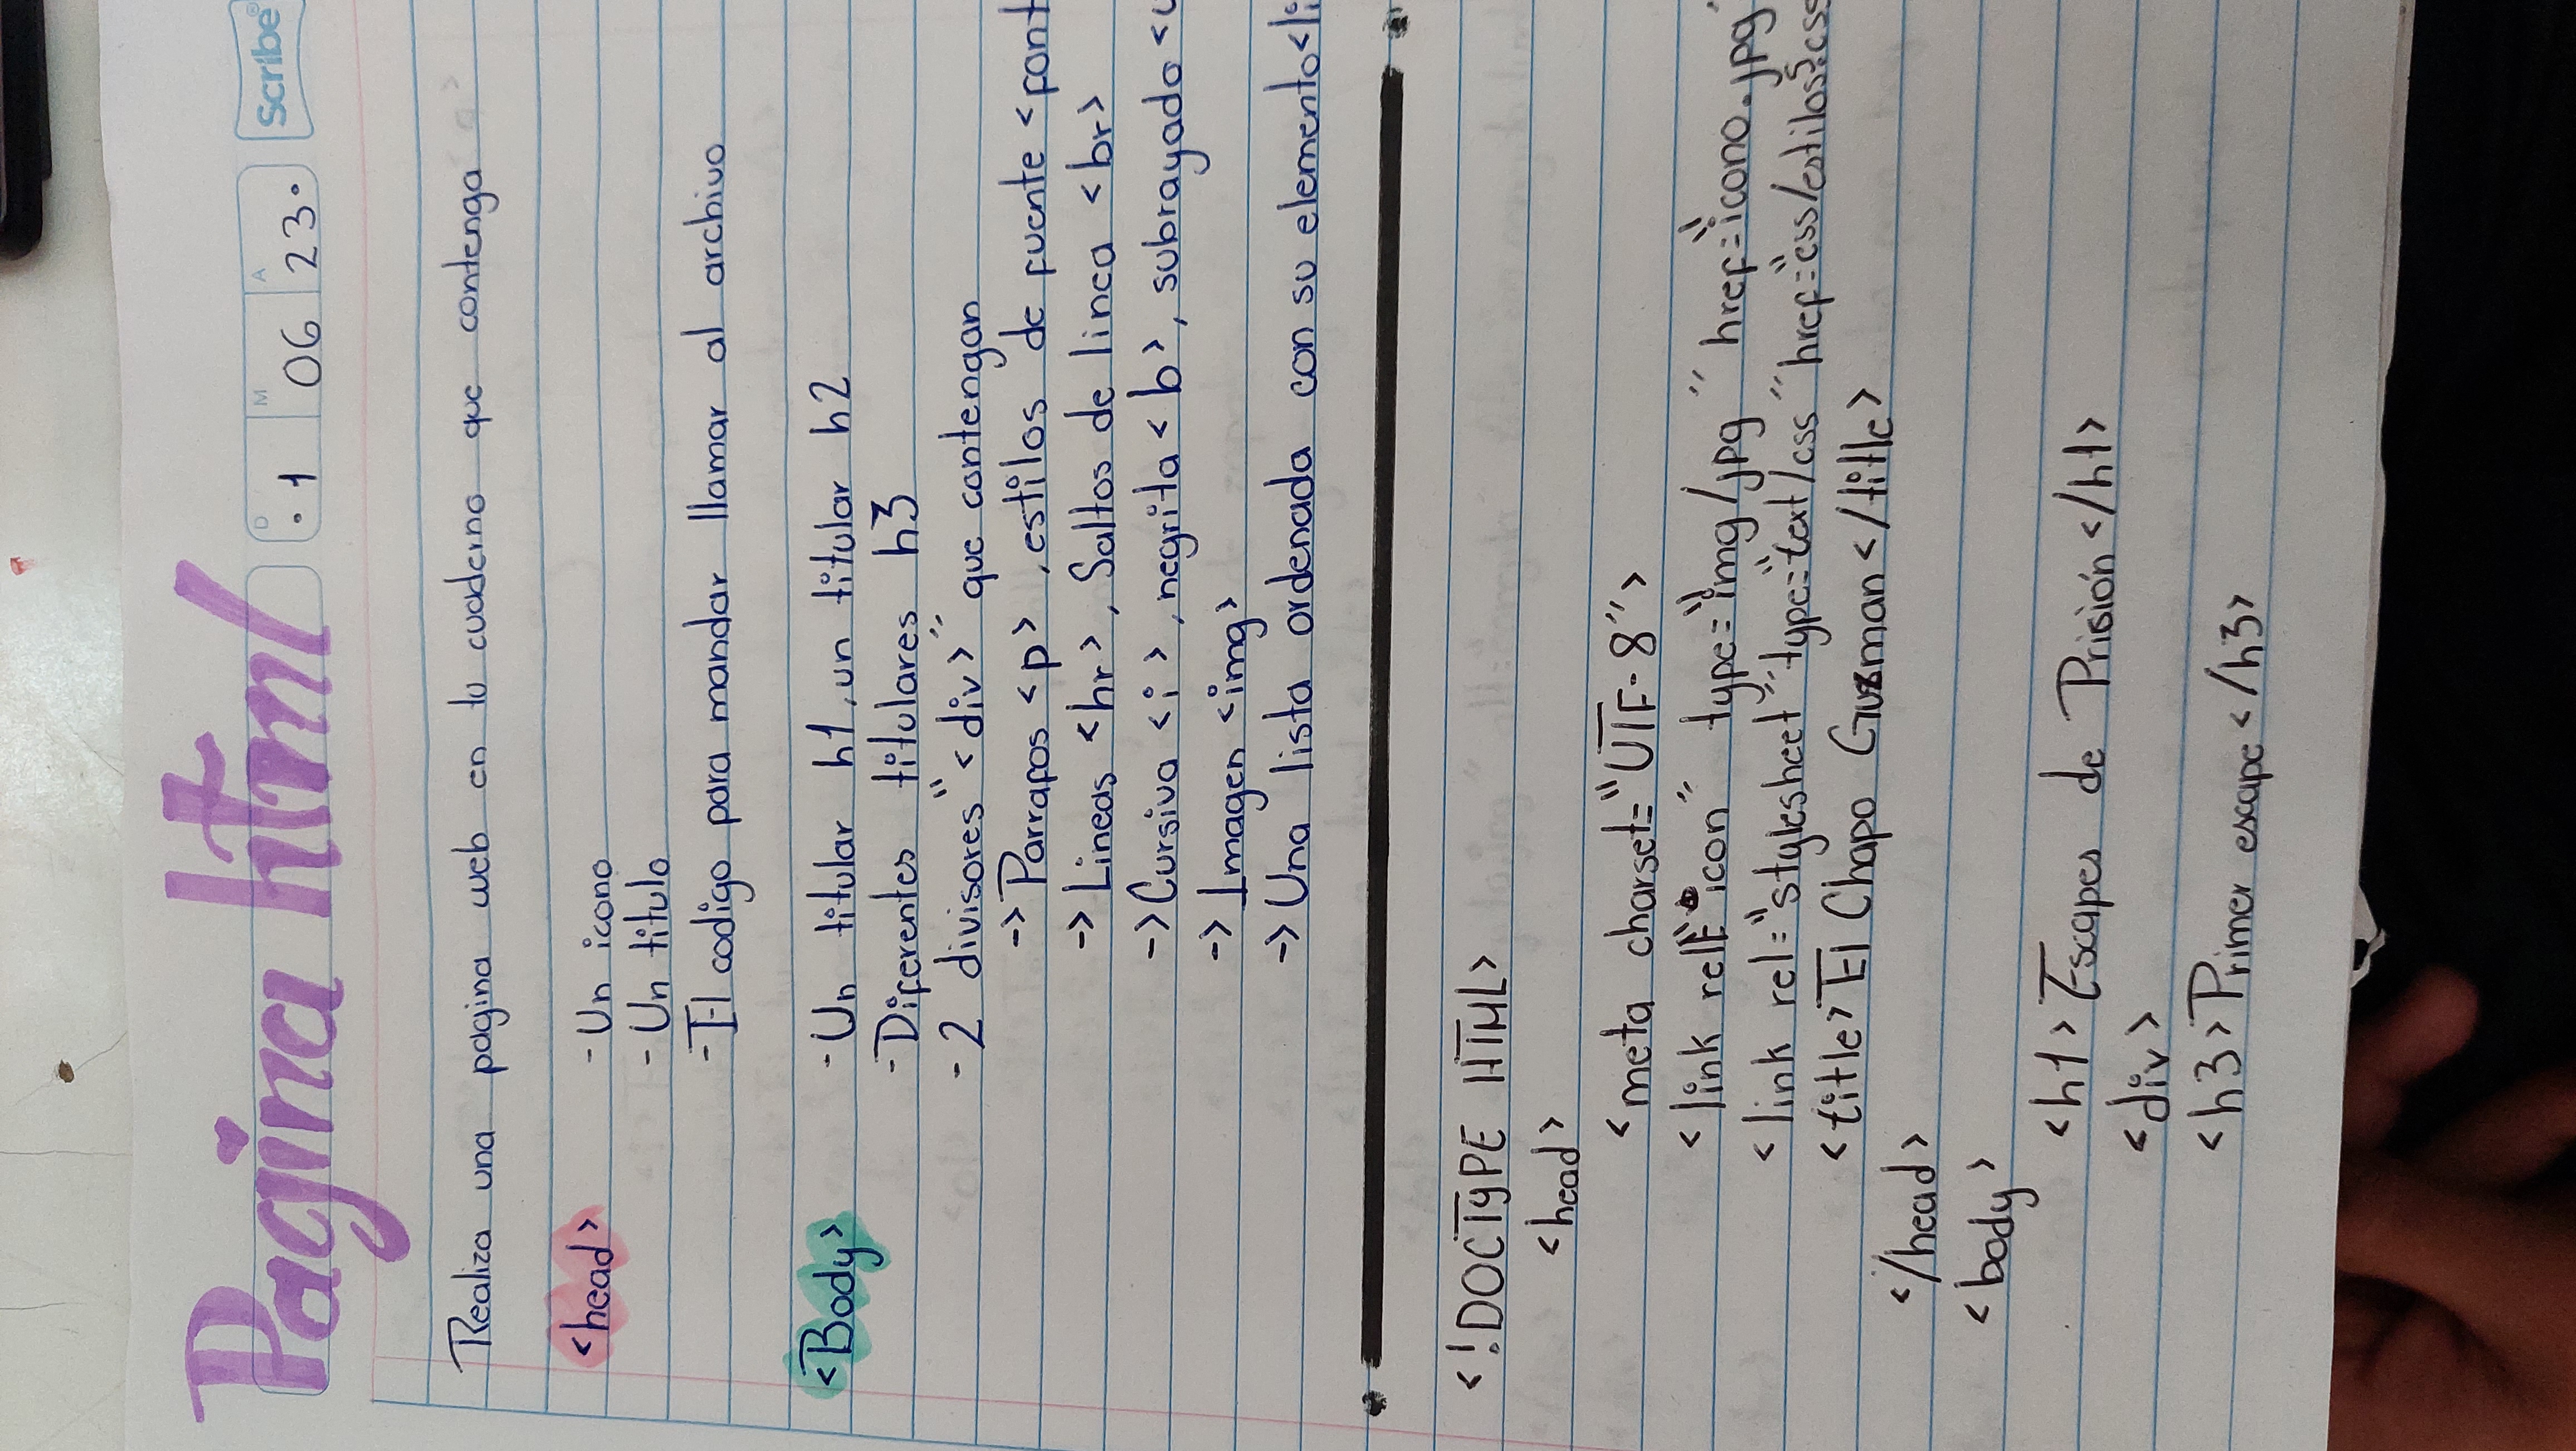 Pagina html
D M A
1 06 23
Scribe
Realiza una pagina web en tu cuaderno que contenga
<head> - Un icono
- Un titulo
- El codigo para mandar llamar al archivo
<Body> - Un titular h1, un titular h2
- Diferentes titulares h3
- 2 divisores "<div>" que contengan
-> Parrafos <p>, estilos de fuente <font
-> Lineas <hr>, Saltos de linea <br>
-> Cursiva <i>, negrita <b>, subrayado <u
-> Imagen <img>
-> Una lista ordenada con su elemento <li
<!DOCTYPE HTML>
<head>
<meta charset="UTF-8">
<link rel="icon" type="img/jpg" href="icono.jpg"
<link rel="stylesheet" type="text/css" href="css/estilos.css
<title>El Chapo Guzman</title>
</head>
<body>
<h1>Escapes de Prisión</h1>
<div>
<h3>Primer escape</h3>